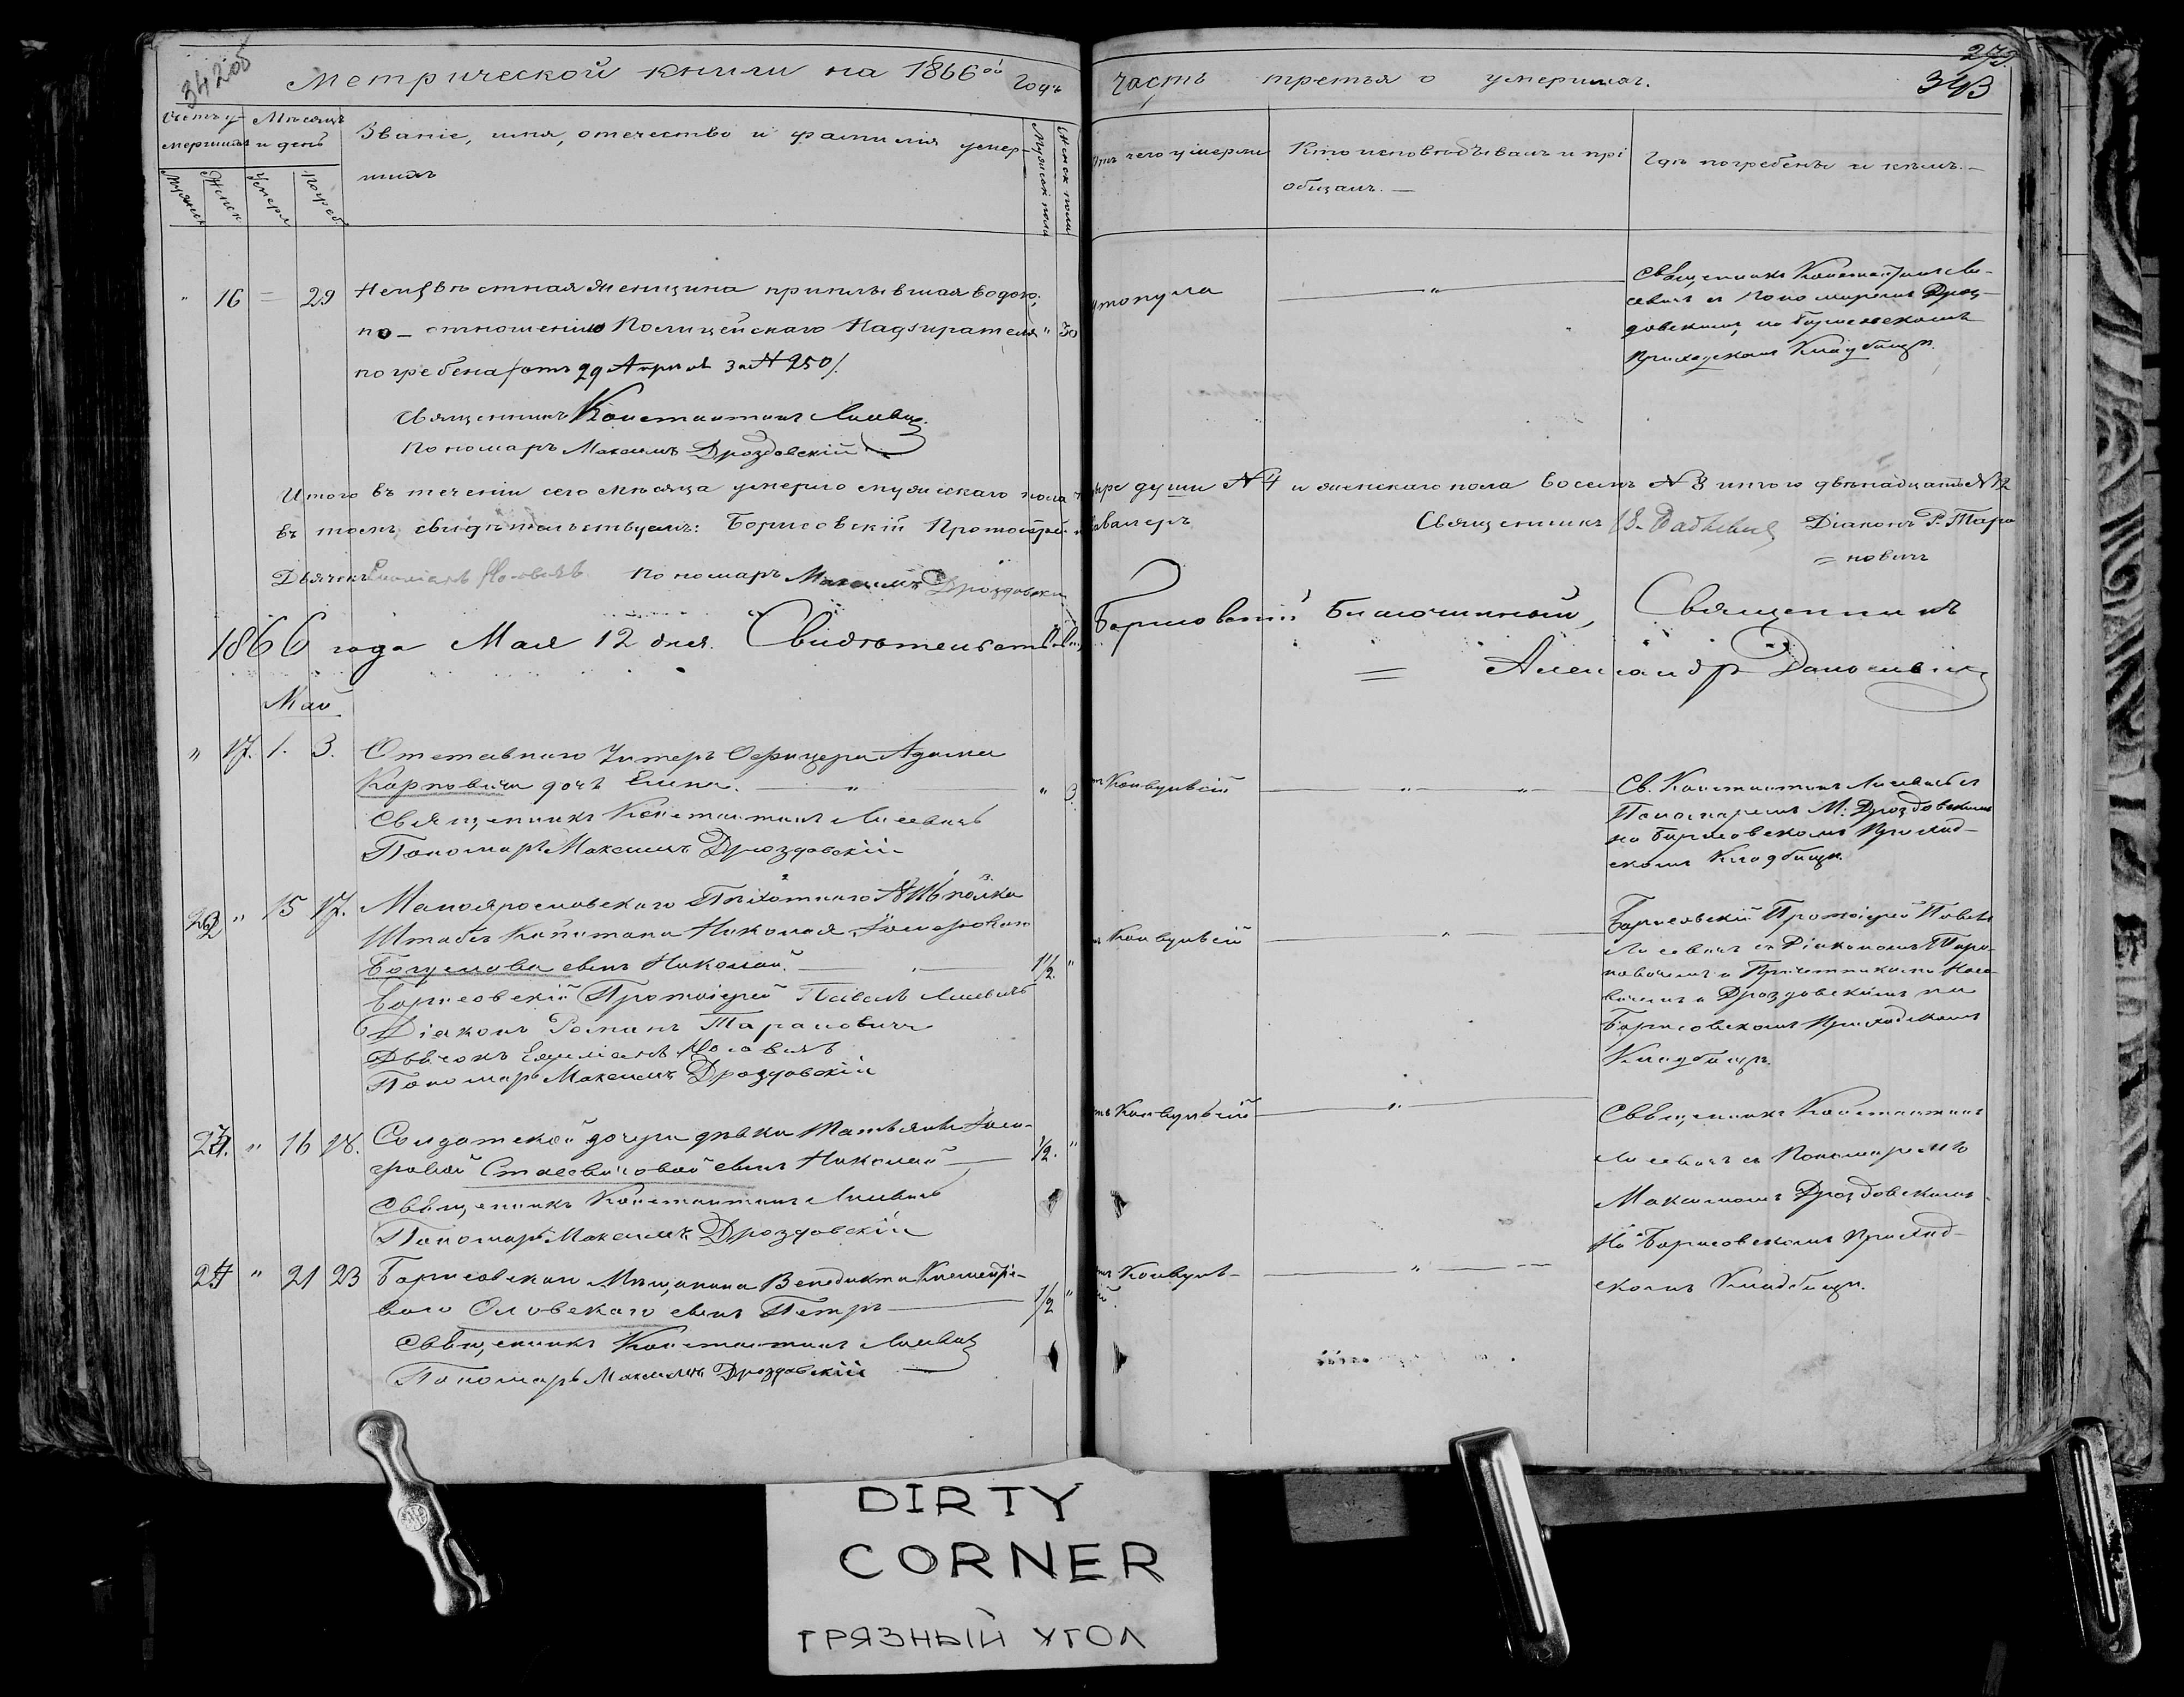 34208
Метрической книги на 1866ой Годъ
часть третья о умершихъ.
273
343
Счетъ у-
мершихъ
Мѣсяцъ
и день
Званіе, имя, отечество и фамилія умер-
шихъ
Мужеск
Женск
Умерл
Погреб
Мужеск пола
Женск пола
Отъ чего умерли
Кто исповѣдывалъ и прі
общалъ. —
Гдѣ погребены и кѣмъ. —
" 16 = 29 Неизвѣстная женщина приплывшая водою,
по — отношенію Полицейскаго Надзирателя " 30
погребена /отъ 29 Апрѣля за № 250/.
Священникъ Константинъ Лисевичъ
Пономаръ Максимъ Дроздовскій
утонула
Священникъ Константинъ Ли-
севичъ съ Пономаремъ Дроз-
довскимъ, на Борисовскомъ
Приходскомъ Кладбищѣ.
Итого въ теченіи сего мѣсяца умерло мужескаго пола четыре души № 4 и женскаго пола восемъ № 8 итого двѣнадцать № 12
въ томъ свидѣтельствуемъ: Борисовскій Протоіерей и Кавалеръ
Священникъ Діаконъ Р. Тара
= новичъ
Дьячекъ Пономаръ Максимъ Дроздовскій
1866 года Мая 12 дня. Свидѣтельствовалъ Борисовскій Благочинный, Священникъ
= Александръ
Май
" 17. 1. 3. Отставнаго Унтеръ Офицера Адама
Карповича дочь Елена. — " — " 3
Священникъ Константинъ Лисевичъ
Пономаръ Максимъ Дроздовскій
отъ Конвульсій
Св. Константинъ Лисевичъ съ
Пономаремъ М. Дроздовскимъ
на Борисовскомъ Приход-
скомъ Кладбищѣ.
22 " 15 17. Малоярославскаго Пѣхотнаго полка
Штабсъ Капитана Николая
Богуслава сынъ Николай. — " — 1/2. "
Борисовскій Протоіерей Павелъ Лисевичъ
Діаконъ Романъ Тарановичъ
Дьячокъ
Пономаръ Максимъ Дроздовскій
отъ Конвульсій
Борисовскій Протоіерей Павелъ
Лисевичъ съ Діакономъ Тара-
новичемъ и Причетниками
и Дроздовскимъ на
Борисовскомъ Приходскомъ
Кладбищѣ.
23. " 16 18. Солдатской дочери дѣвки Татьяны
Стасевичовой сынъ Николай — 1/2. "
Священникъ Константинъ Лисевичъ
Пономаръ Максимъ Дроздовскій
отъ Конвульсій
Священникъ Константинъ
Лисевичъ съ Пономаремъ
Максимомъ Дроздовскимъ
На Борисовскомъ Приход-
скомъ Кладбищѣ.
24 " 21 23 Борисовскаго Мѣщанина Венедикта Климентіе-
ваго Оловскаго сынъ Петръ — 1/2 "
Священникъ Константинъ Лисевичъ
Пономаръ Максимъ Дроздовскій
отъ Конвуль-
сій.
DIRTY
CORNER
ГРЯЗНЫЙ УГОЛ